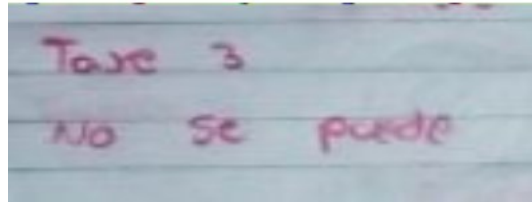 Tare 3
No se puede